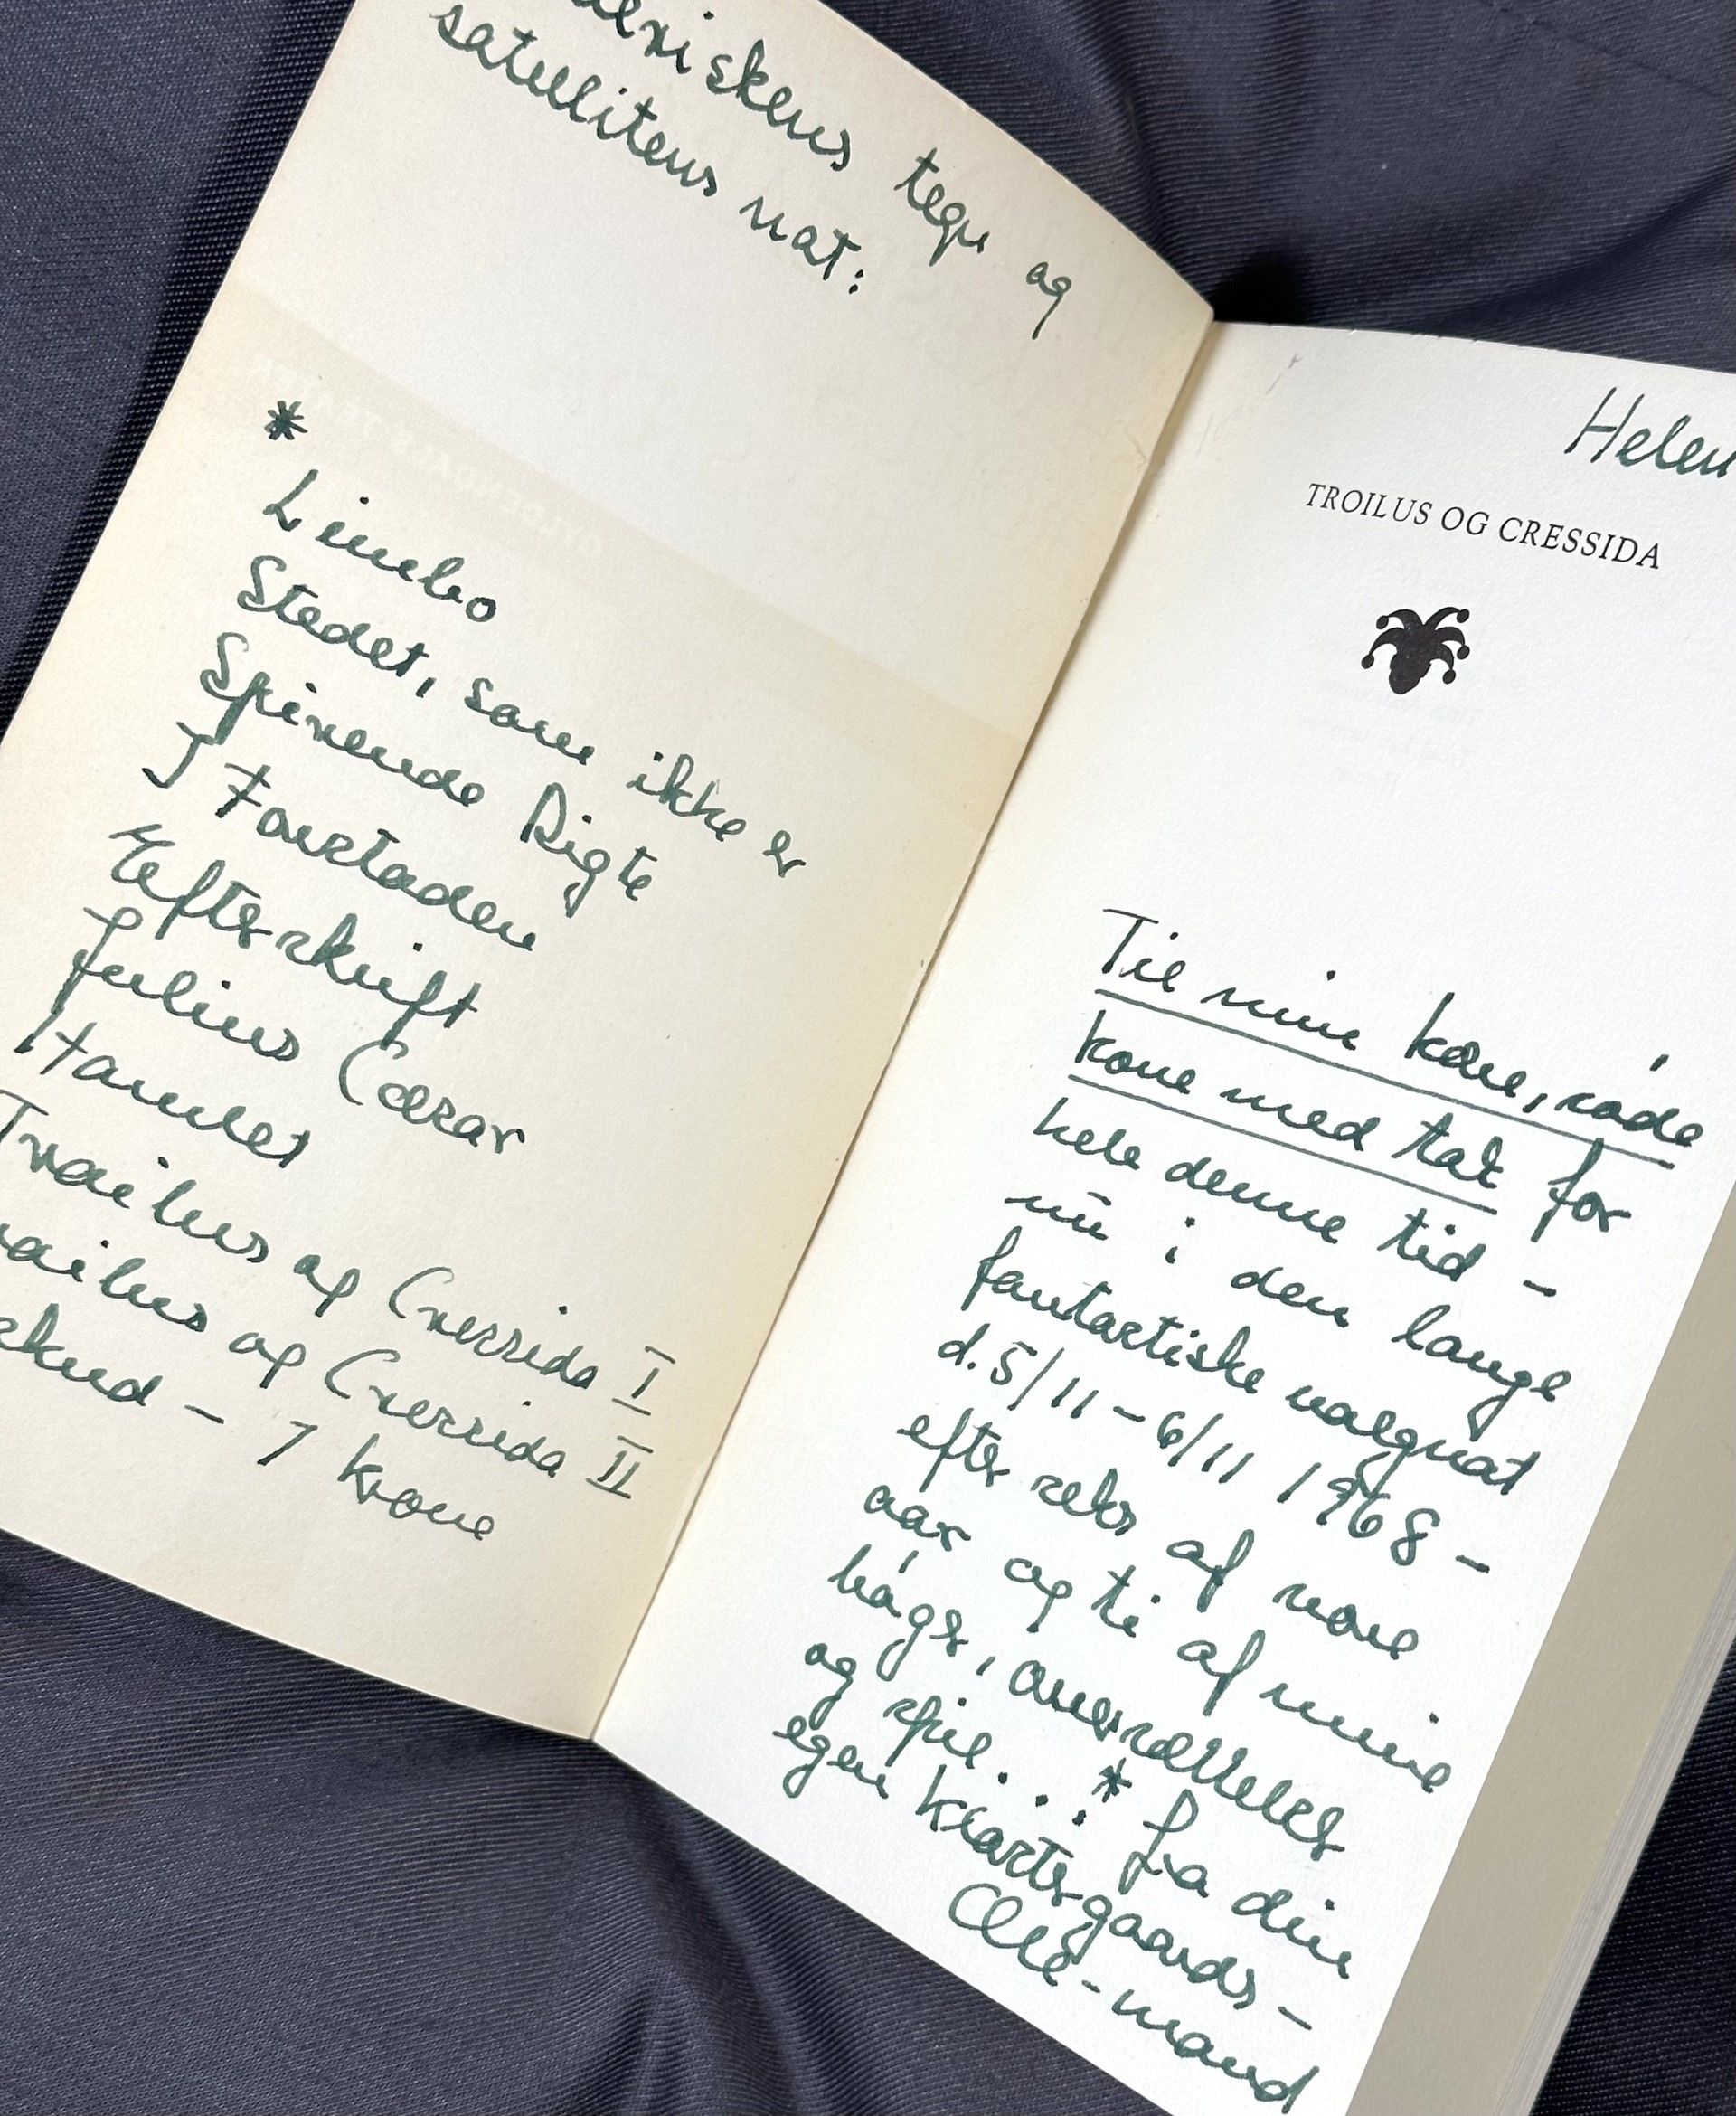 tegn og
satellitens nat:
*
Limbo
Stedet, som ikke er
Spirende Digte
I Forstaden
Efterskrift
Julius Cæsar
Hamlet
Troilus og Cressida I
og Cressida II
– 7 krone
Helen
TROILUS OG CRESSIDA
Til min kære, røde
kone med tak for
hele denne tid –
nu i den lange
fantastiske valgnat
d. 5/11 – 6/11 1968 –
efter seks af vore
aar og ti af mine
bøger, oversættelser
og spil...* fra din
egen kvartersgaards-
Olé-mand